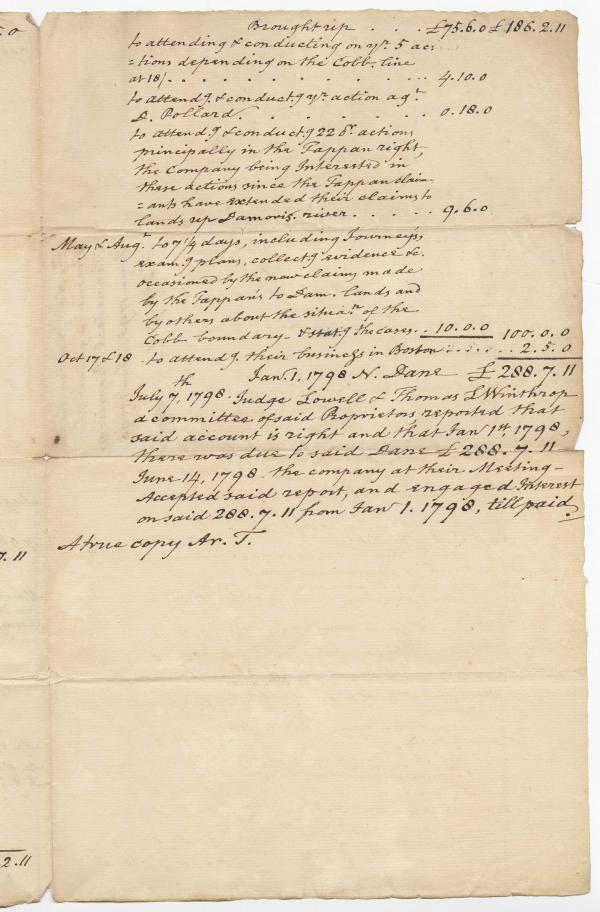 Brought up . . . £75.6.0 £186.2.11
to attending & conducting on yr. 5 ac
=tions depending on the Cobb line
at 18/. . . . . . . . . . . . 4.10.0
to attendg. & conductg. yr. action agt.
L. Pollard . . . . . . . . 0.18.0
to attendg. & conductg. 22 actions
principally in the Tappan right,
the Company being Interested in
these actions since the Tappan claim
=ants have extended their claims to
lands up Damoris. river . . . . . 9.6.0
May & Augt. to 7 1/4 days, including Journeys,
examg. plans, collectg. evidence &c.
occasioned by the new claims made
by the Tappan's to Dam. lands and
by others about the situan. of the
Cobb boundary - & statg. the cases . . 10.0.0 100.0.0
Oct 17 & 18 - to attendg. their business in Boston . . . . . 2.5.0
Jan. 1, 1798 N. Dane £288.7.11
July 7th, 1798. Judge Lowell & Thomas L Winthrop
a committee of said Proprietors reported that
said account is right and that Jan 1st, 1798,
there was due to said Dane £288.7.11
June 14, 1798 - the company at their Meeting -
Accepted said report, and engaged Interest
on said 288.7.11 from Jan 1. 1798, till paid
A true copy Ar. T.
7.11
2.11